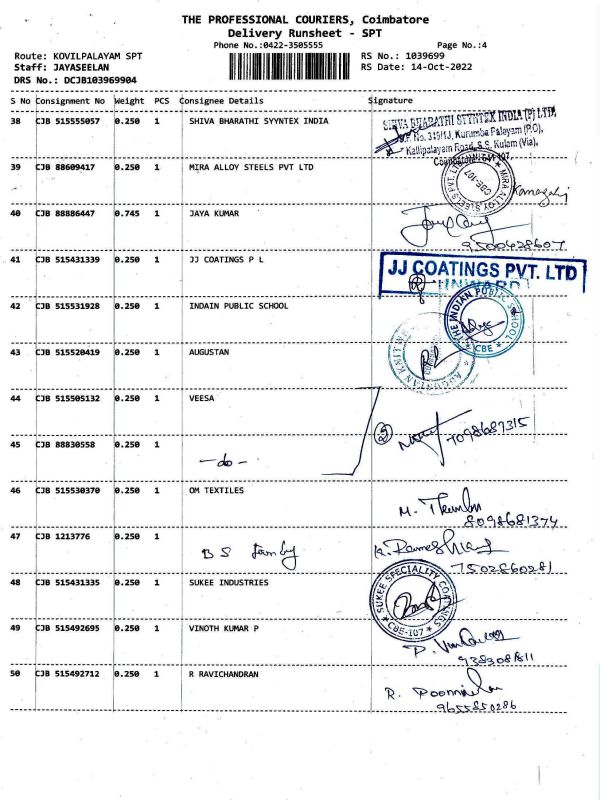 THE PROFESSIONAL COURIERS, Coimbatore
Delivery Runsheet - SPT
Phone No.:0422-3505555 Page No.:4
Route: KOVILPALAYAM SPT RS No.: 1039699
Staff: JAYASEELAN RS Date: 14-Oct-2022
DRS No.: DCJB103969904
S No Consignment No Weight PCS Consignee Details Signature
38 CJB 515555057 0.250 1 SHIVA BHARATHI SYYNTEX INDIA
SHIVA BHARATHI SYYNTEX INDIA (P) LTD
S.F. No. 315/1J, Kurumba Palayam (P.O),
Kallipalayam Road, S.S. Kulam (Via),
Coimbatore 641 107.
39 CJB 88609417 0.250 1 MIRA ALLOY STEELS PVT LTD
MIRA ALLOY STEELS PVT. L
CBE-107
40 CJB 88886447 0.745 1 JAYA KUMAR
9500428607
41 CJB 515431339 0.250 1 JJ COATINGS P L
JJ COATINGS PVT. LTD
INWARD
42 CJB 515531928 0.250 1 INDAIN PUBLIC SCHOOL
THE INDIAN PUBLIC SCHOOL
CBE
43 CJB 515520419 0.250 1 AUGUSTAN
AUGUSTAN KNITW
44 CJB 515505132 0.250 1 VEESA
② 7098687315
45 CJB 88830558 0.250 1
-do-
46 CJB 515530370 0.250 1 OM TEXTILES
M.
8098681374
47 CJB 1213776 0.250 1
B S family
K. Rameshwar
7502860281
48 CJB 515431335 0.250 1 SUKEE INDUSTRIES
SUKEE SPECIALITY COATINGS
CBE-107
49 CJB 515492695 0.250 1 VINOTH KUMAR P
P.
50 CJB 515492712 0.250 1 R RAVICHANDRAN
R.
9655850286